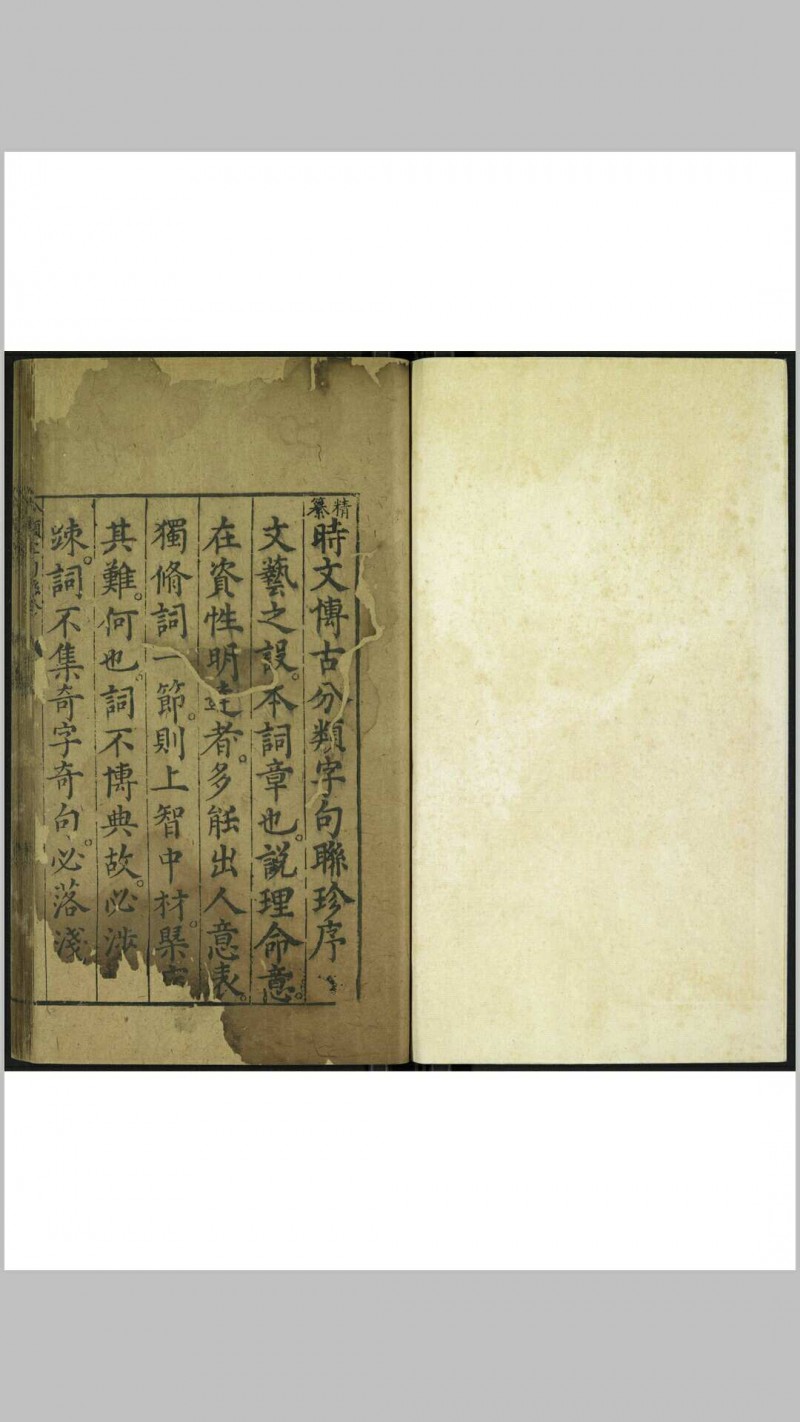 精纂時文博古分類字句聯珍序
文藝之設。本詞章也。說理命意。
在資性明達者。多能出人意表。
獨脩詞一節。則上智中材。槩
其難。何也。詞不博典故。必涉
踈。詞不集奇字奇句。必落淺